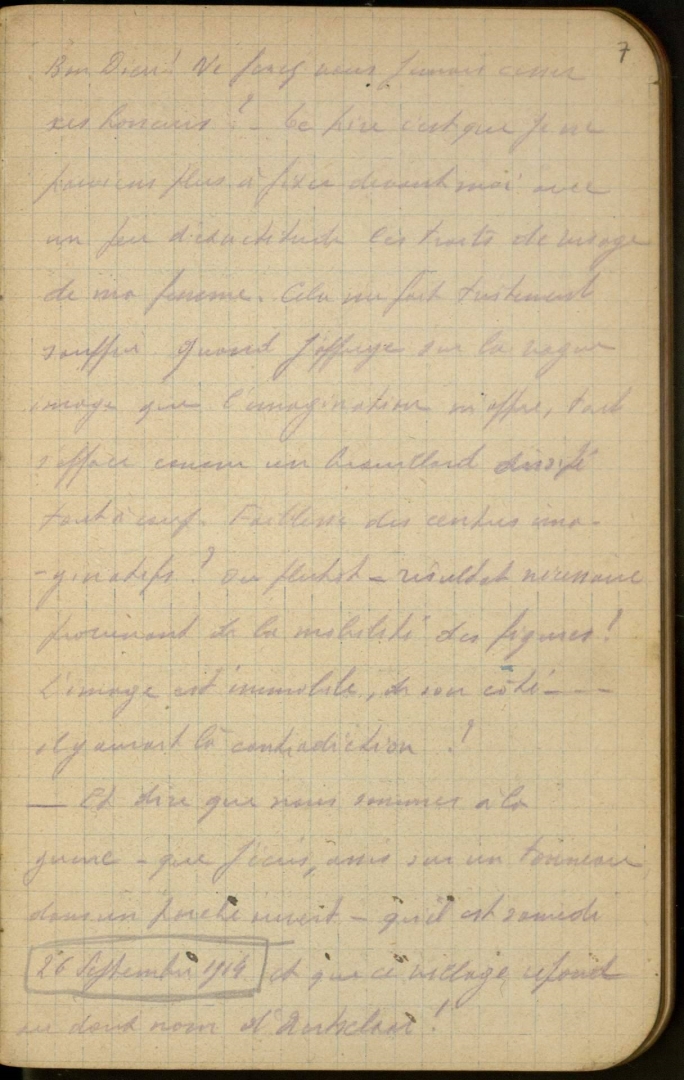 7
Bon Dieu! Ne ferez vous jamais cesser
ces horreurs? - Le pire c'est que je ne
parviens plus à fixer devant moi avec
un peu d'exactitude les traits de visage
de ma femme. Cela me fait tristement
souffrir. Quand j'appuye sur la vague
image que l'imagination m'offre, tout
s'efface comme un brouillard dissipé
tout à coup. Faiblesse des centres ima-
-ginatifs? ou plutôt - résultat nécessaire
provenant de la mobilité des figures!
L'image est immobile, de son côté ---
il y aurait là contradiction!?
— Et dire que nous sommes à la
guerre - que j'écris, assis sur un tonneau
dans un porche ouvert - qu'il est samedi
26 Septembre 1914 et que ce village répond
au doux nom d'